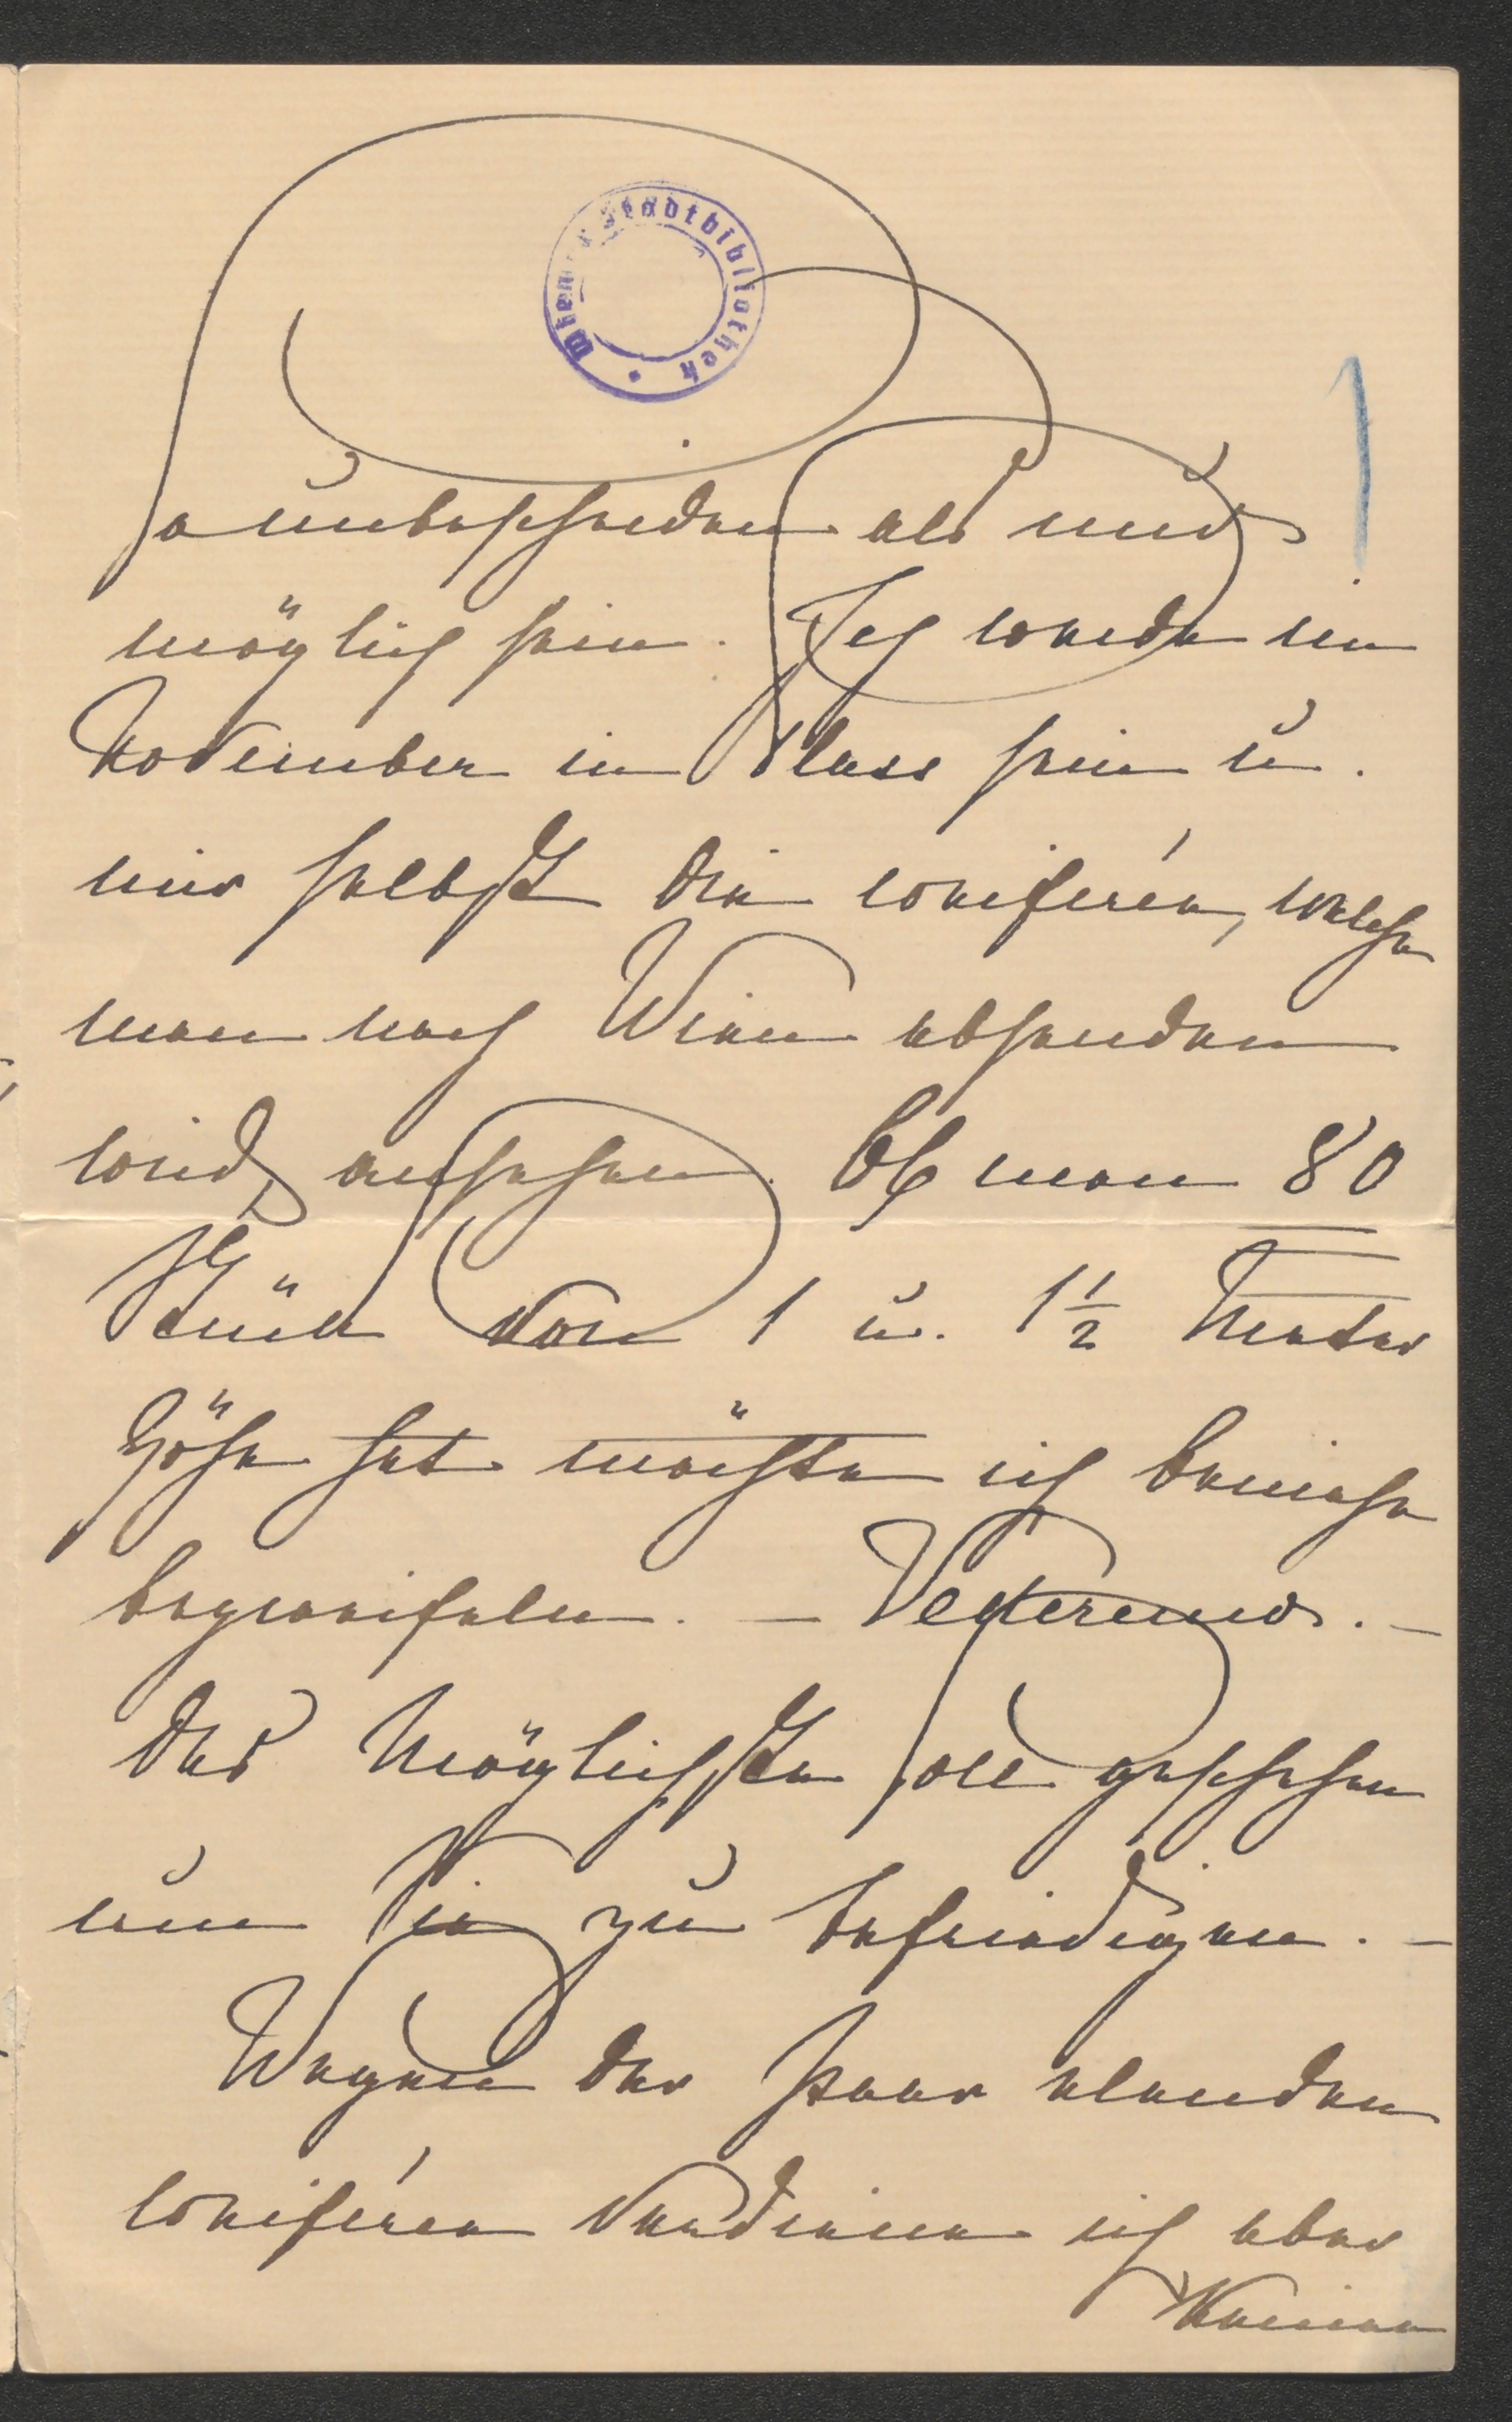 Wiener Stadtbibliothek
so unbescheiden als nur
möglich sein. Ich werde im
November in Blass sein u.
mir selbst die coniferen, welche
man nach Wien absenden
wird, ansehen. Ob man 80
Stück von 1 u. 1½ Meter
Höhe hat möchte ich beinahe
bezweifeln. — Vederemo. —
Das Möglichste soll geschehen
um Sie zu befriedigen. —
Wegen der paar elenden
coniferen verdiene ich aber
keinen